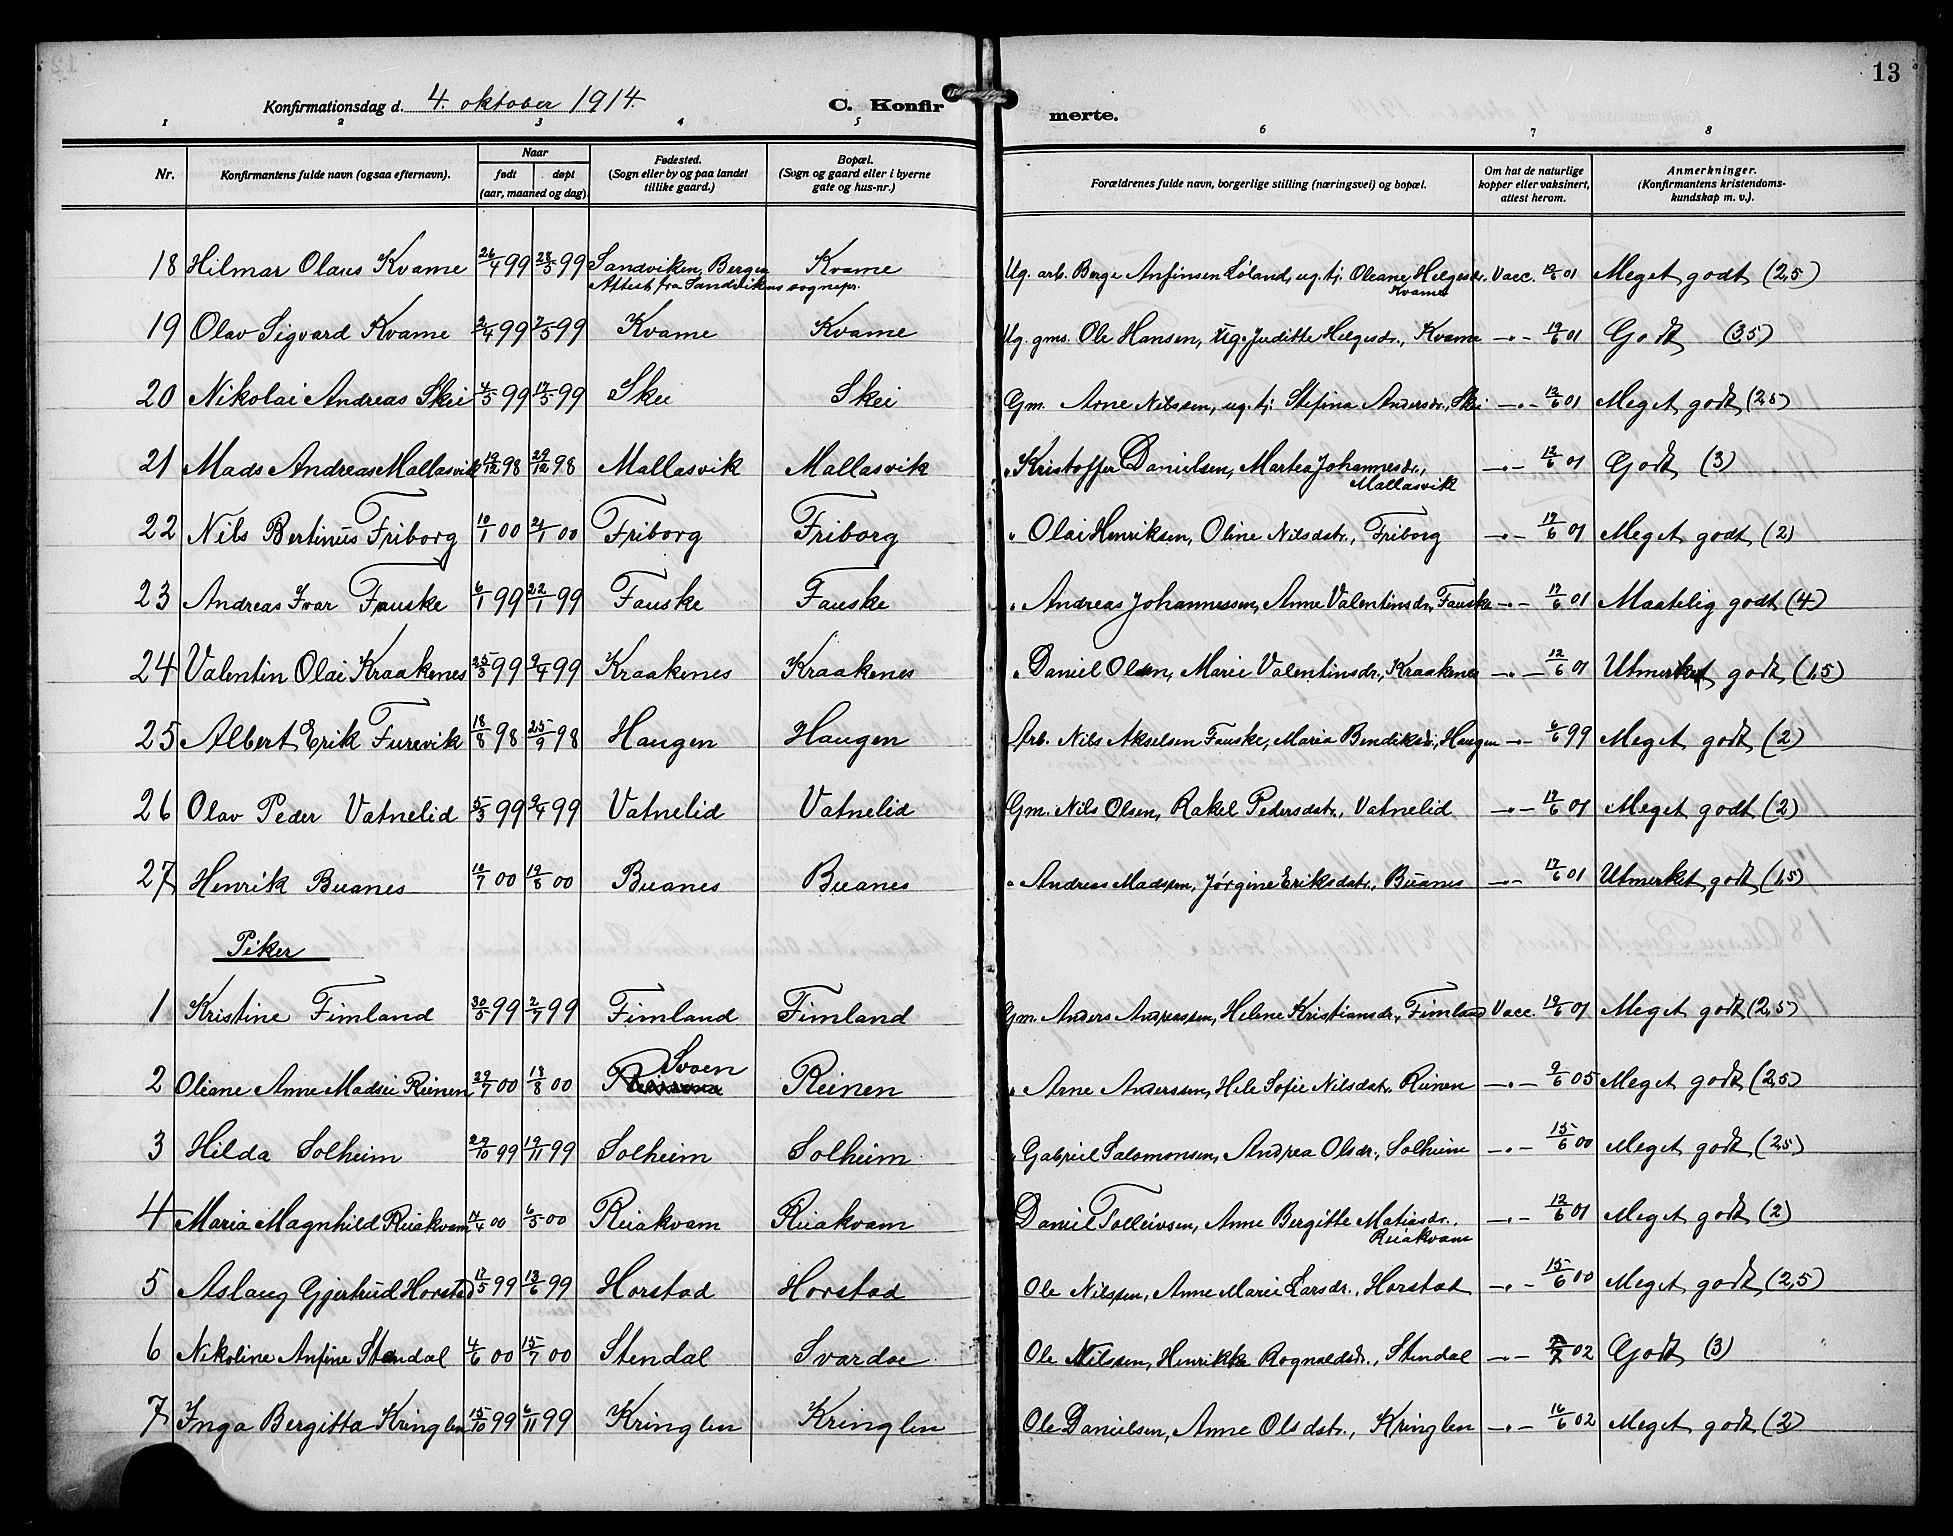 13
Konfirmationsdag d. 4. oktober 1914. C. Konfir merte.
1 2 3 4 5 6 7 8
Nr. Konfirmantens fulde navn (ogsaa efternavn). Naar født døpt (aar, maaned og dag) Fødested. (Sogn eller by og paa landet tillike gaard.) Bopæl. (Sogn og gaard eller i byerne gate og hus-nr.) Forældrenes fulde navn, borgerlige stilling (næringsvei) og bopæl. Om hat de naturlige kopper eller vaksinert, attest herom. Anmerkninger. (Konfirmantens kristendoms- kundskap m. v.).
18 Hilmar Olaus Kvame 26/4 99 28/5 99 Sandviken, Bergen Attest fra Sandvikens sognepr. Kvame Ug. arb. Berge Anfinsen Løland, ug. tj. Oleane Helgesdr. Kvame Vacc. 12/6 01 Meget godt (2,5)
19 Olav Sigvard Kvame 2/4 99 7/5 99 Kvame Kvame Ug. gms. Ole Hansen, ug. Juditte Helgesdr., Kvame —"— 12/6 01 Godt (3,5)
20 Nikolai Andreas Skei 4/5 99 17/5 99 Skei Skei Gm. Arne Nilssen, ug. tj. Stefina Andersdr., Skei —"— 12/6 01 Meget godt (2,5)
21 Mads Andreas Mallasvik 19/12 98 29/12 98 Mallasvik Mallasvik " Kristoffer Danielsen, Martea Johannesdr., Mallasvik —"— 12/6 01 Godt (3)
22 Nils Bertinus Friborg 10/1 00 21/1 00 Friborg Friborg " Olai Henriksen, Oline Nilsdatr., Friborg —"— 12/6 01 Meget godt (2)
23 Andreas Ivar Fauske 6/1 99 22/1 99 Fauske Fauske " Andreas Johannessen, Anne Valentinsdr., Fauske —"— 12/6 01 Maatelig godt (4)
24 Valentin Olai Kraakenes 25/3 99 9/4 99 Kraakenes Kraakenes " Daniel Olsen, Marie Valentinsdr., Kraakenes —"— 12/6 01 Utmerket godt (1,5)
25 Albert Erik Furevik 18/8 98 25/9 98 Haugen Haugen Arb. Nils Akselsen Fauske, Maria Bendiksdr., Haugen —"— 6/6 99 Meget godt (2)
26 Olav Peder Vatnelid 5/3 99 9/4 99 Vatnelid Vatnelid Gm. Nils Olsen, Rakel Pedersdatr., Vatnelid —"— 12/6 01 Meget godt (2)
27 Henrik Buanes 10/7 00 19/8 00 Buanes Buanes " Andreas Madssen, Jørgine Eriksdatr., Buanes —"— 12/6 01 Utmerket godt (1,5)
Piker
1 Kristine Fimland 30/5 99 2/7 99 Fimland Fimland Gm. Anders Andreassen, Helene Kristiansdr., Fimland Vacc. 12/6 01 Meget godt (2,5)
2 Oliane Anne Madsie Reinen 29/7 00 18/8 00 Svoen Reinen " Arne Anderssen, Hele Sofie Nilsdatr. Reinen —"— 9/6 05 Meget godt (2,5)
3 Hilda Solheim 29/10 99 19/11 99 Solheim Solheim " Gabriel Salomonsen, Andrea Olsdr., Solheim —"— 15/6 00 Meget godt (2,5)
4 Maria Magnhild Reiakvam 17/4 00 6/5 00 Reiakvam Reiakvam Daniel Tolleivsen, Anne Bergitte Matiasdr., Reiakvam —"— 12/6 01 Meget godt (2)
5 Aslaug Gjertrud Horstad 17/5 99 18/6 99 Horstad Horstad Ole Nilssen, Anne Marie Larsdr., Horstad —"— 15/6 00 Meget godt (2,5)
6 Nikoline Anfine Stendal 4/6 00 15/7 00 Stendal Svardøe Ole Nilssen, Henrikke Rognaldsdr., Stendal —"— 02 Godt (3)
7 Inga Bergitta Kringlen 15/10 99 6/11 99 Kringlen Kringlen Ole Danielsen, Anne Olsdatr., Kringlen —"— 16/6 02 Meget godt (2)